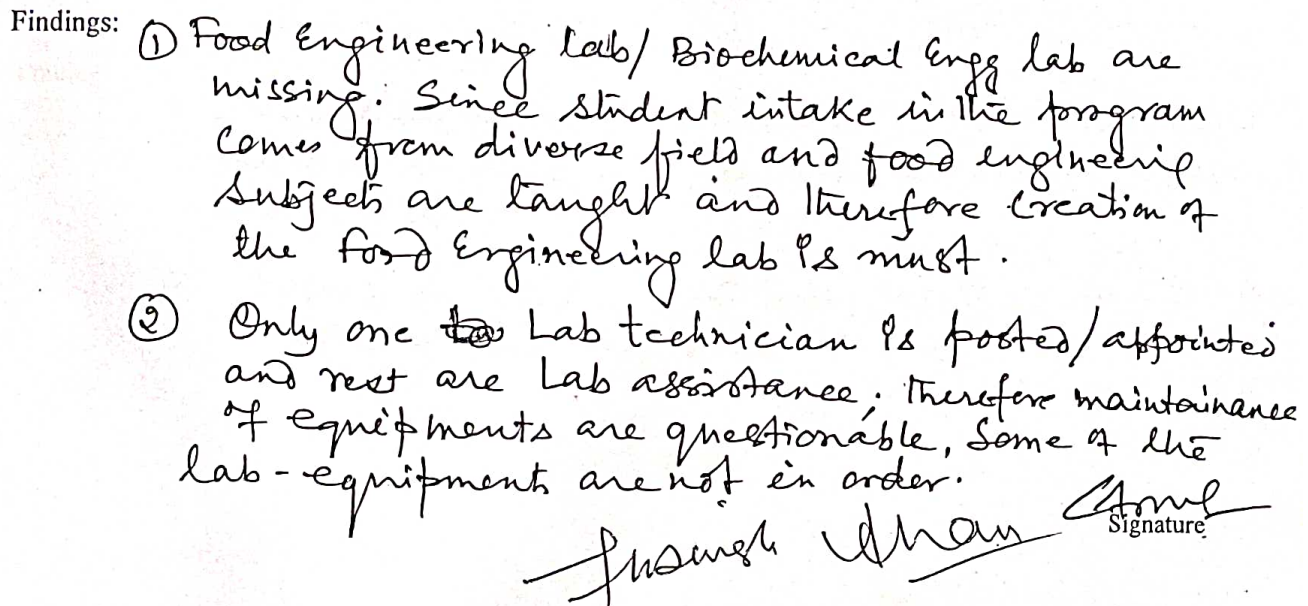 Findings:
① Food Engineering lab/ Biochemical Engg lab are
missing. Since student intake in the program
comes from diverse field and food engineering
subjects are taught and therefore creation of
the food Engineering lab is must.
② Only one Lab technician is posted/appointed
and rest are Lab assistance; Therefore maintainance
of equipments are questionable, Some of the
lab-equipments are not in order.
Signature